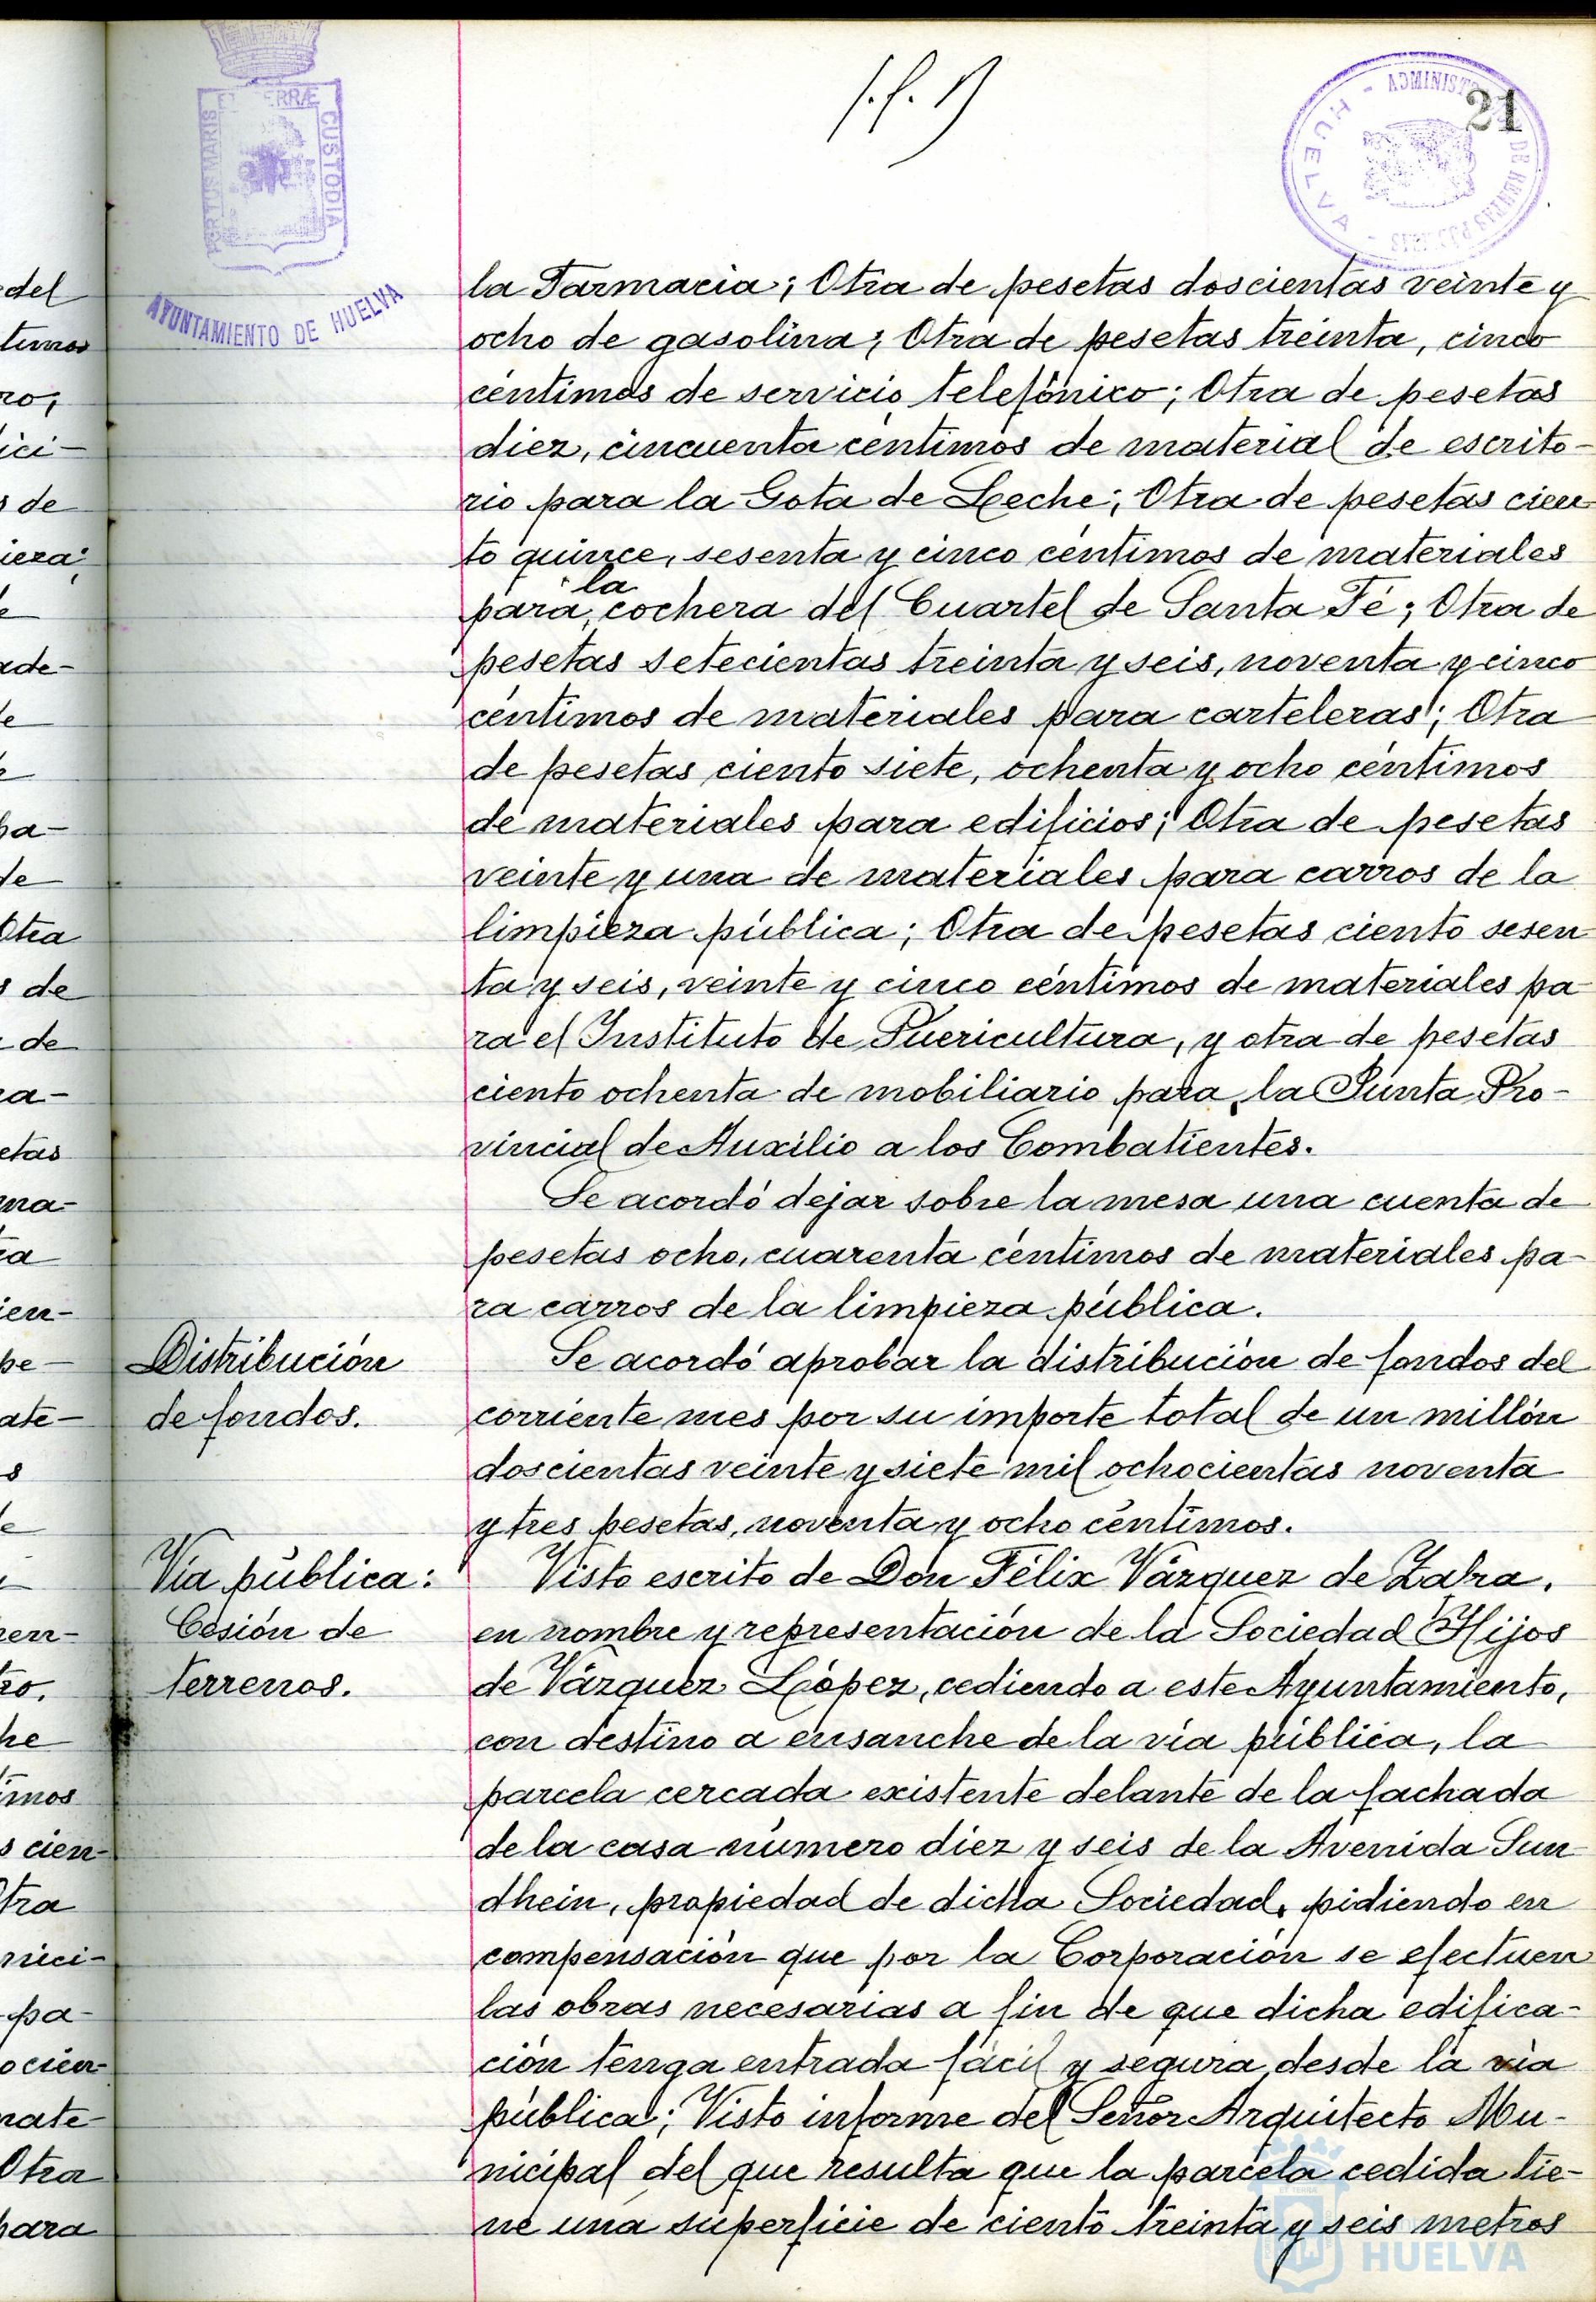 21
PORTUS MARIS ET TERRÆ CUSTODIA
AYUNTAMIENTO DE HUELVA
HUELVA
la Farmacia; Otra de pesetas doscientas veinte y
ocho de gasolina; Otra de pesetas treinta, cinco
céntimos de servicio telefónico; Otra de pesetas
diez, cincuenta céntimos de material de escrito-
rio para la Gota de Leche; Otra de pesetas cien
to quince, sesenta y cinco céntimos de materiales
para la cochera del Cuartel de Santa Fé; Otra de
pesetas setecientas treinta y seis, noventa y cinco
céntimos de materiales para carteleras; Otra
de pesetas ciento siete, ochenta y ocho céntimos
de materiales para edificios; Otra de pesetas
veinte y una de materiales para carros de la
limpieza pública; Otra de pesetas ciento sesen
ta y seis, veinte y cinco céntimos de materiales pa
ra el Instituto de Puericultura, y otra de pesetas
ciento ochenta de mobiliario para la Junta Pro-
vincial de Auxilio a los Combatientes.
Se acordó dejar sobre la mesa una cuenta de
pesetas ocho, cuarenta céntimos de materiales pa-
ra carros de la limpieza pública.
Distribución
de fondos.
Se acordó aprobar la distribución de fondos del
corriente mes por su importe total de un millón
doscientas veinte y siete mil ochocientas noventa
y tres pesetas, noventa y ocho céntimos.
Vía pública:
Cesión de
terrenos.
Visto escrito de Don Félix Vázquez de Zafra,
en nombre y representación de la Sociedad Hijos
de Vázquez López, cediendo a este Ayuntamiento,
con destino a ensanche de la vía pública, la
parcela cercada existente delante de la fachada
de la casa número diez y seis de la Avenida Sun
dhein, propiedad de dicha Sociedad, pidiendo en
compensación que por la Corporación se efectuen
las obras necesarias a fin de que dicha edifica-
ción tenga entrada fácil y segura desde la vía
pública; Visto informe del Señor Arquitecto Mu-
nicipal del que resulta que la parcela cedida tie-
ne una superficie de ciento treinta y seis metros
HUELVA